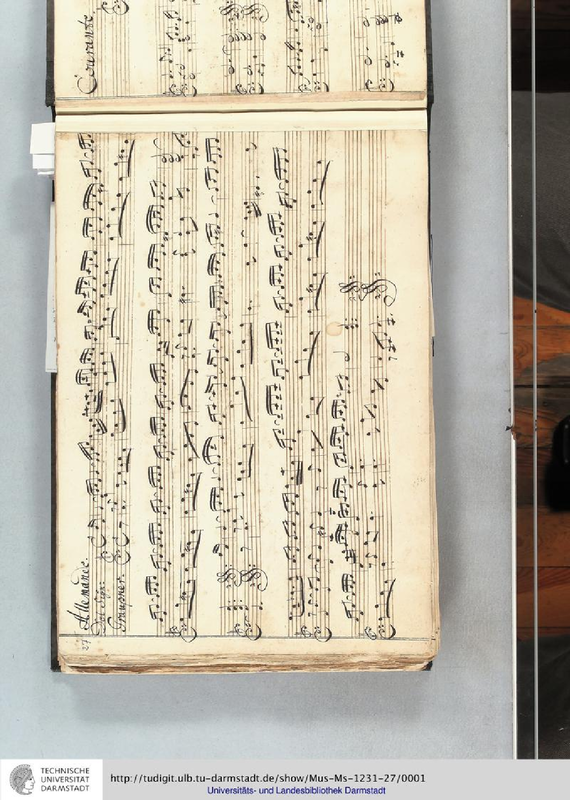 Courante
16
27
Allemande.
Del Sigr:
Graupner.
TECHNISCHE
UNIVERSITÄT
DARMSTADT
http://tudigit.ulb.tu-darmstadt.de/show/Mus-Ms-1231-27/0001
Universitäts- und Landesbibliothek Darmstadt